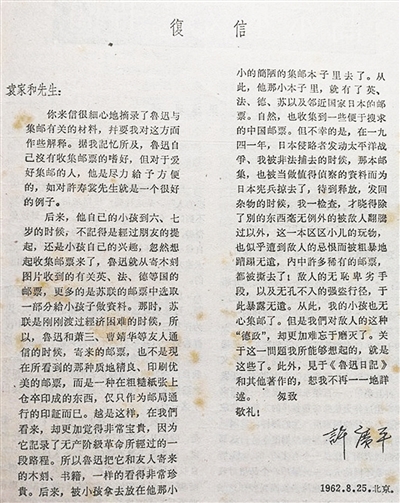 復信
袁家和先生：
你来信很細心地摘录了鲁迅与
集邮有关的材料，幷要我对这方面
作些解释。据我記忆所及，鲁迅自
己沒有收集邮票的嗜好，但对于爱
好集邮的人，他是尽力給予方便
的，如对許寿裳先生就是一个很好
的例子。
后来，他自己的小孩到六、七
岁的时候，不記得是經过朋友的提
起，还是小孩自己的兴趣，忽然想
起收集邮票来了，鲁迅就从寄木刻
图片收到的有关英、法、德等国的
邮票，更多的是苏联的邮票中选取
一部分給小孩子做資料。那时，苏
联是刚刚渡过經济困难的时候，所
以，鲁迅和萧三、曹靖华等友人通
信的时候，寄来的邮票，也不是现
在所看到的那种质地精良、印刷优
美的邮票，而是一种在粗糙紙张上
仓卒印成的东西，仅只作为邮局通
行的印証而已。越是这样，在我們
看来，却更加觉得非常宝貴，因为
它記录了无产阶級革命所經过的一
段路程。所以鲁迅把它和友人寄来
的木刻、书籍，一样的看得非常珍
貴。后来，被小孩拿去放在他那小
小的简陋的集邮本子里去了。从
此，他那小本子里，就有了英、
法、德、苏以及邻近国家日本的邮
票。自然，也收集到一些便于搜求
的中国邮票。但不幸的是，在一九
四一年，日本侵略者发动太平洋战
争、我被非法捕去的时候，那本邮
集，也被当做值得侦察的資料而为
日本宪兵掠去了，待到释放，发回
杂物的时候，我一检查，才晓得除
了別的东西毫无例外的被敌人翻腾
过以外，这一本区区小儿的玩物，
也似乎遭到敌人的忌恨而被粗暴地
蹂躪无遺，內中許多稀有的邮票，
都被撕去了！敌人的无恥卑劣手
段，以及无孔不入的强盗行径，于
此暴露无遺。从此，我的小孩也无
心集邮了。但是我們对敌人的这种
“德政”，却更加难忘于磨灭了。关
于这一問題我所能够想起的，就是
这些了。此外，見于《鲁迅日記》
和其他著作的，恕我不再一一地詳
述。 匆致
敬礼！
許廣平
1962.8.25.北京.